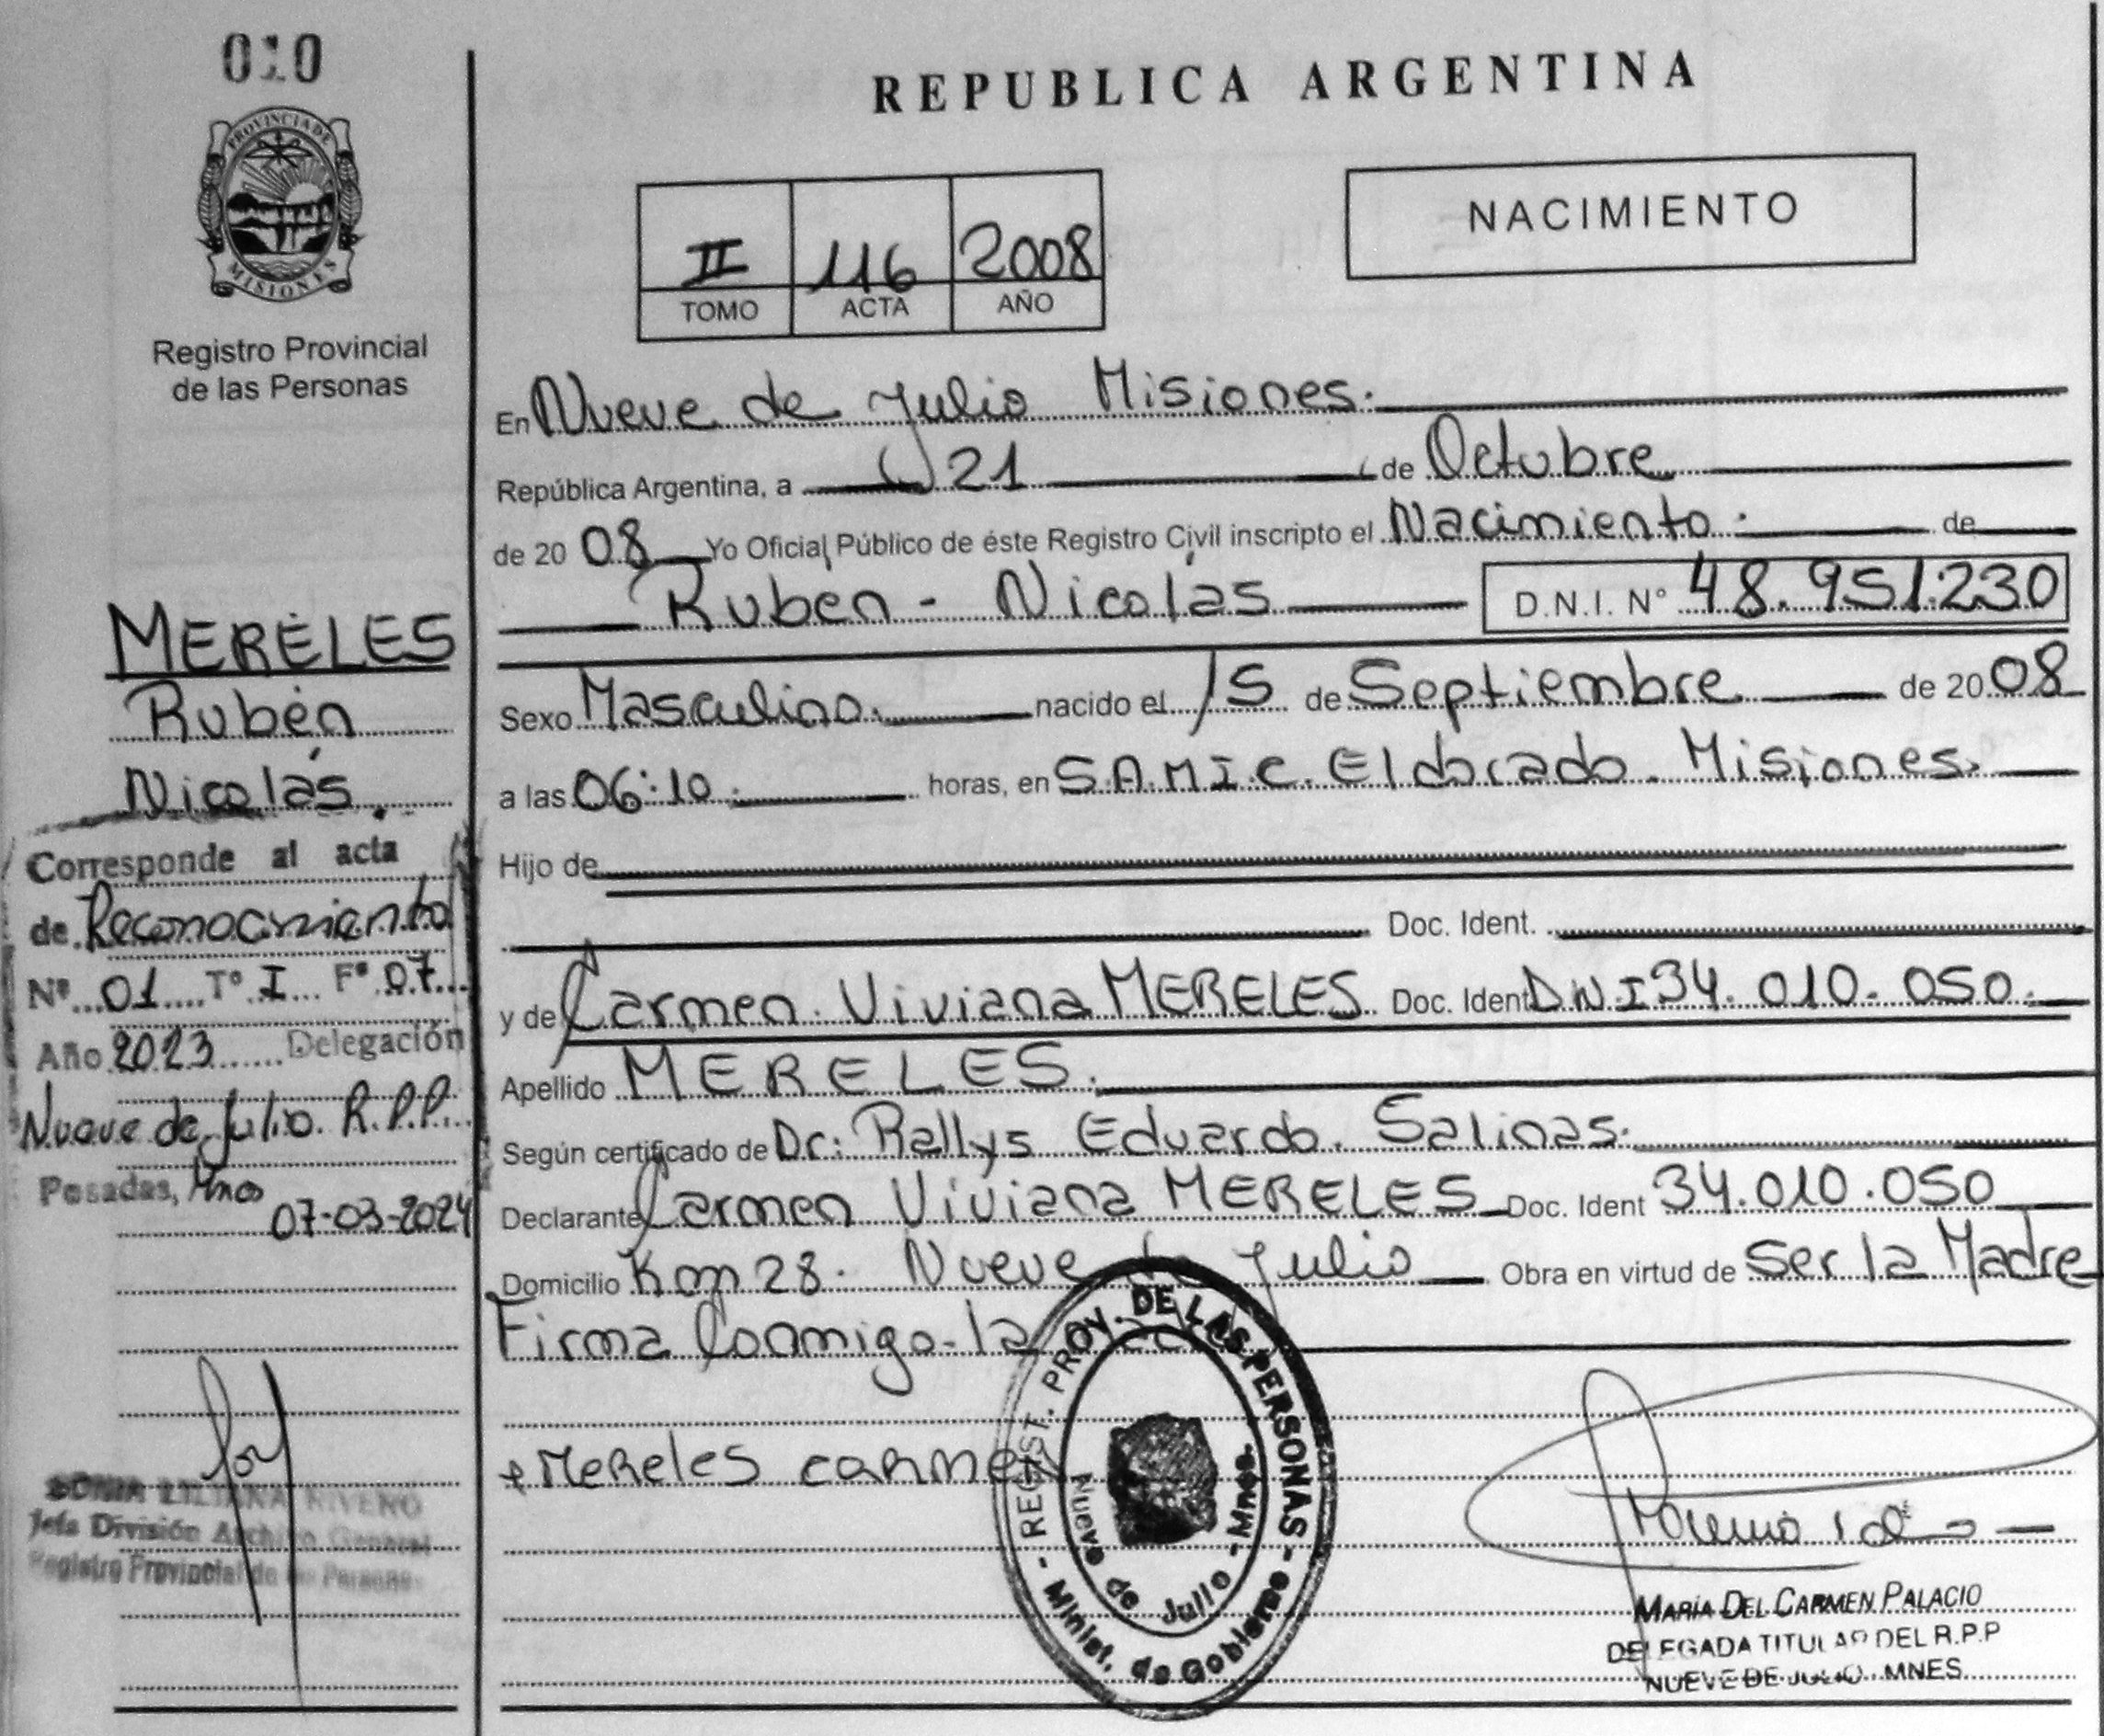 010
PROVINCIA DE
MISIONES
Registro Provincial
de las Personas
MERELES
Rubén
Nicolás.
Corresponde al acta
de Reconocimiento
Nº 01 Tº I Fº 07
Año 2023 Delegación
Nueve de Julio. R.P.P.
Posadas, Mnes
07-03-2024
SONIA LILIANA RIVERO
Jefa División Archivo General
Registro Provincial de las Personas
REPUBLICA ARGENTINA
II 116 2008
TOMO ACTA AÑO
NACIMIENTO
En Nueve de Julio Misiones.
República Argentina, a 21 de Octubre
de 20 08 Yo Oficial Público de éste Registro Civil inscripto el Nacimiento. de
Ruben - Nicolás D.N.I. Nº 48.951.230
Sexo Masculino. nacido el 15 de Septiembre de 20 08
a las 06:10. horas, en S.A.M.I.C. Eldorado. Misiones.
Hijo de
Doc. Ident.
y de Carmen. Viviana MERELES Doc. Ident DNI 34.010.050.
Apellido MERELES.
Según certificado de Dr: Rallys Eduardo. Salinas.
Declarante Carmen Viviana MERELES Doc. Ident 34.010.050
Domicilio Km 28. Nueve de Julio Obra en virtud de Ser la Madre
Firma Conmigo - la
Mereles carmen
- REGIST. PROV. DE LAS PERSONAS -
Minist. de Gobierno
Nueve de Julio - Mnes.
MARÍA DEL CARMEN PALACIO
DELEGADA TITULAR DEL R.P.P
NUEVE DE JULIO. MNES